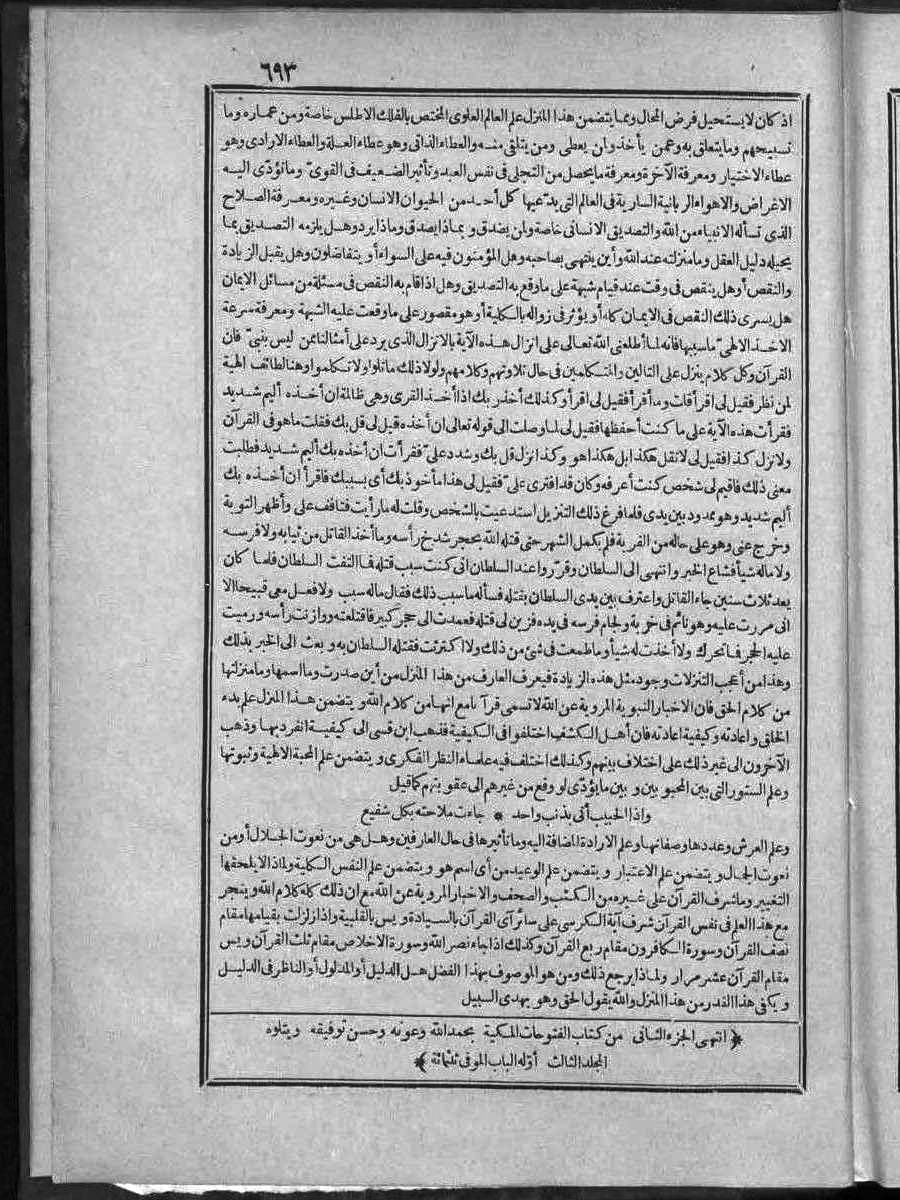 ٦٩٣
اذ كان لا يستحيل فرض المحال ومما يتضمن هذا المنزل علم العالم العلوى المختص بالفلك الاطلس خاصة ومن عماره وما
تسبيحهم وما يتعلق به وعمن يأخذ ولمن يعطى ومن يتلقى منه والعطاء الذاتى وهو عطاء العلة والعطاء الارادى وهو
عطاء الاختيار ومعرفة الآخرة ومعرفة ما يحصل من التجلى فى نفس العبد وتأثير الضعيف فى القوىّ وما تؤدّى اليه
الاغراض والاهواء الربانية السارية فى العالم التى يدّعيها كل أحد من الحيوان الانسان وغيره ومعرفة الصلاح
الذى تسأله الانبياء من الله والتصديق الانسانى خاصة ولمن يصدق وبماذا يصدق وماذا يرد وهل يلزمه التصديق بما
يحيله دليل العقل وما منزلته عند الله وأين ينتهى بصاحبه وهل المؤمنون فيه على السواء أو يتفاضلون وهل يقبل الزيادة
والنقص أو هل ينقص فى وقت عند قيام شبهة على ما وقع به التصديق وهل اذا قام به النقص فى مسئلة من مسائل الايمان
هل يسرى ذلك النقص فى الايمان كله أو يؤثر فى زواله بالكلية أو هو مقصور على ما وقعت عليه الشبهة ومعرفة سرعة
الاخذ الالهىّ ما سببها فانه لما أطلعنى الله تعالى على انزال هذه الآية بالانزال الذى يرد على أمثالنا ممن ليس بنبىّ فان
القرآن وكل كلام ينزل على التالين والمتكلمين فى حال تلاوتهم وكلامهم ولولا ذلك ما تلوا ولا تكلموا وهنا لطائف الهية
لمن نظر فقيل لى اقرأ قلت وما أقرأ فقيل لى اقرأ وكذلك أخذ ربك اذا أخذ القرى وهى ظالمة ان أخذه أليم شديد
فقرأت هذه الآية على ما كنت أحفظها فقيل لى لما وصلت الى قوله تعالى ان أخذه قيل لى قل بك فقلت ما هو فى القرآن
ولا نزل كذا فقيل لى لا تقل هكذا بل هكذا هو وكذا نزل قل بك وشدد علىّ فقرأت ان أخذه بك أليم شديد فطلبت
معنى ذلك فاقيم لى شخص كنت أعرفه وكان قد افترى علىّ فقيل لى هذا مأخوذ بك أى بسببك فاقرأ ان أخذه بك
أليم شديد وهو ممدود بين يدى فلما فرغ ذلك التنزيل استدعيت بالشخص وقلت له ما رأيت فتاقف على وأظهر التوبة
وخرج عنى وهو على حاله من الفرية فلم يكمل الشهر حتى قتله الله بحجر شدخ رأسه وما أخذ القاتل من ثيابه ولا فرسه
ولا ماله شيأ فشاع الخبر وانتهى الى السلطان وقرّروا عند السلطان انى كنت سبب قتله فما التفت السلطان فلما كان
بعد ثلاث سنين جاء القاتل واعترف بين يدى السلطان بقتله فسأله ما سبب ذلك فقال ماله سبب ولا فعل معى قبيحا الا
انى مررت عليه وهو نائم فى خربة ولجام فرسه فى يده فزين لى قتله فعمدت الى حجر كبير فاقتلعته ووازنت رأسه ورميت
عليه الحجر فما تحرك ولا أخذت له شيأ وما طمعت فى شئ من ذلك ولا اكترثت فقتله السلطان به وبعث الى الخبر بذلك
وهذا من أعجب التنزلات وجود مثل هذه الزيادة فيعرف العارف من هذا المنزل من أين صدرت وما اسمها وما منزلتها
من كلام الحق فان الاخبار النبوية المروية عن الله لا تسمى قرآنا مع انها من كلام الله ويتضمن هذا المنزل علم بدء
الخلق واعادته وكيفية اعادته فان أهل الكشف اختلفوا فى الكيفية فذهب ابن قسى الى كيفية انفرد بها وذهب
الآخرون الى غير ذلك على اختلاف بينهم وكذلك اختلف فيه علماء النظر الفكرى ويتضمن علم المحبة الالهية وثبوتها
وعلم الستور التى بين المحبوبين وبين ما يؤدّى لو وقع من غيرهم الى عقوبتهم كما قيل
واذا الحبيب أتى بذنب واحد * جاءت ملاحته بكل شفيع
وعلم العرش وعددها وصفاتها وعلم الارادة المضافة اليه وما تأثيرها فى حال العارفين وهل هى من نعوت الجلال أو من
نعوت الجمال ويتضمن علم الاعتبار ويتضمن علم الوعيد من أى اسم هو ويتضمن علم النفس الكلية ولماذا لا يلحقها
التغيير وما شرف القرآن على غيره من الكتب والصحف والاخبار المروية عن الله مع ان ذلك كله كلام الله وينجر
مع هذا العلم فى نفس القرآن شرف آية الكرسى على سائر آى القرآن بالسيادة ويس بالقلبية واذا زلزلت بقيامها مقام
نصف القرآن وسورة الكافرون مقام ربع القرآن وكذلك اذا جاء نصر الله وسورة الاخلاص مقام ثلث القرآن ويس
مقام القرآن عشر مرار ولماذا يرجع ذلك ومن هو الموصوف بهذا الفضل هل الدليل أو المدلول أو الناظر فى الدليل
ويكفى هذا القدر من هذا المنزل والله يقول الحق وهو يهدى السبيل
﴿ انتهى الجزء الثانى من كتاب الفتوحات المكية بحمد الله وعونه وحسن توفيقه ويتلوه
المجلد الثالث أوّله الباب الموفى ثلثمائة ﴾